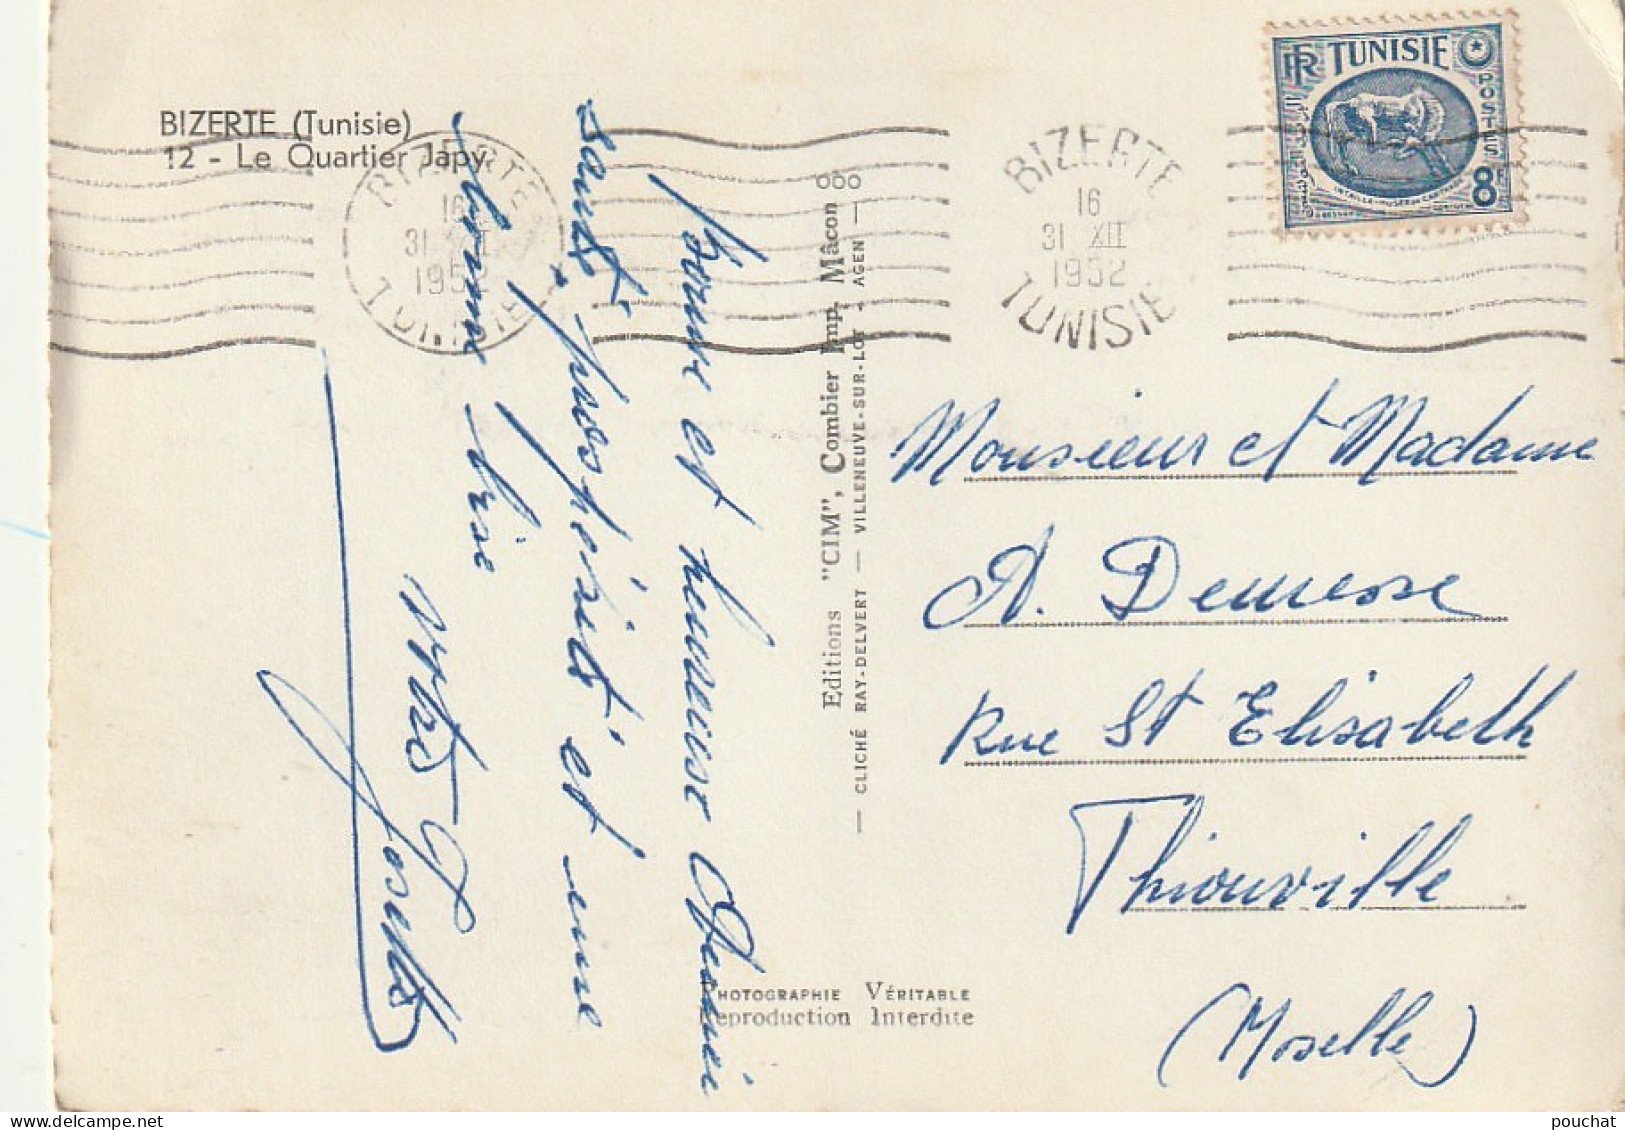 BIZERTE (Tunisie)
12 - Le Quartier Japy.
BIZERTE
16
31 XII
1952
TUNISIE
BIZERTE
16
31 XII
1952
TUNISIE
RF TUNISIE
POSTES
8F
Bonne et heureuse Année
santé, prospérité et une
bonne
Editions "CIM", Combier Imp. Mâcon
— CLICHÉ RAY-DELVERT — VILLENEUVE-SUR-LOT - AGEN —
Monsieur et Madame
A. Demesse
Rue St Elisabeth
Thionville
(Moselle)
PHOTOGRAPHIE VÉRITABLE
Reproduction Interdite
pouchat